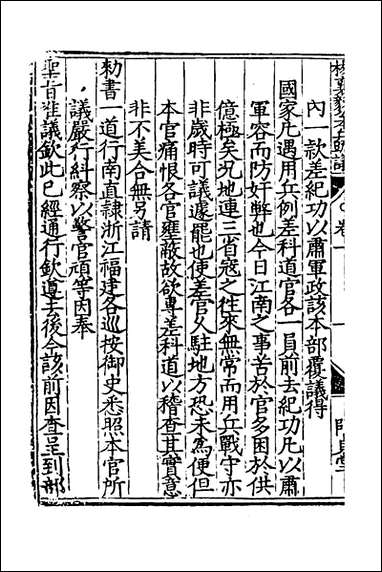 內一款差紀功以肅軍政該本部覆議得
國家凡遇用兵例差科道官各一員前去紀功凡以肅
軍容而防奸弊也今日江南之事苦於官多困於供
億極矣況地連三省寇之往來無常而用兵戰守亦
非歲時可議遽罷也使差官久駐地方恐未爲便但
本官痛恨各官壅蔽故欲專差科道以稽查其實意
非不美合無另請
勑書一道行南直隸浙江福建各巡按御史悉照本官所
議嚴行糾察以警官頑等因奉
聖旨准議欽此已經通行欽遵去後今該前因查呈到部